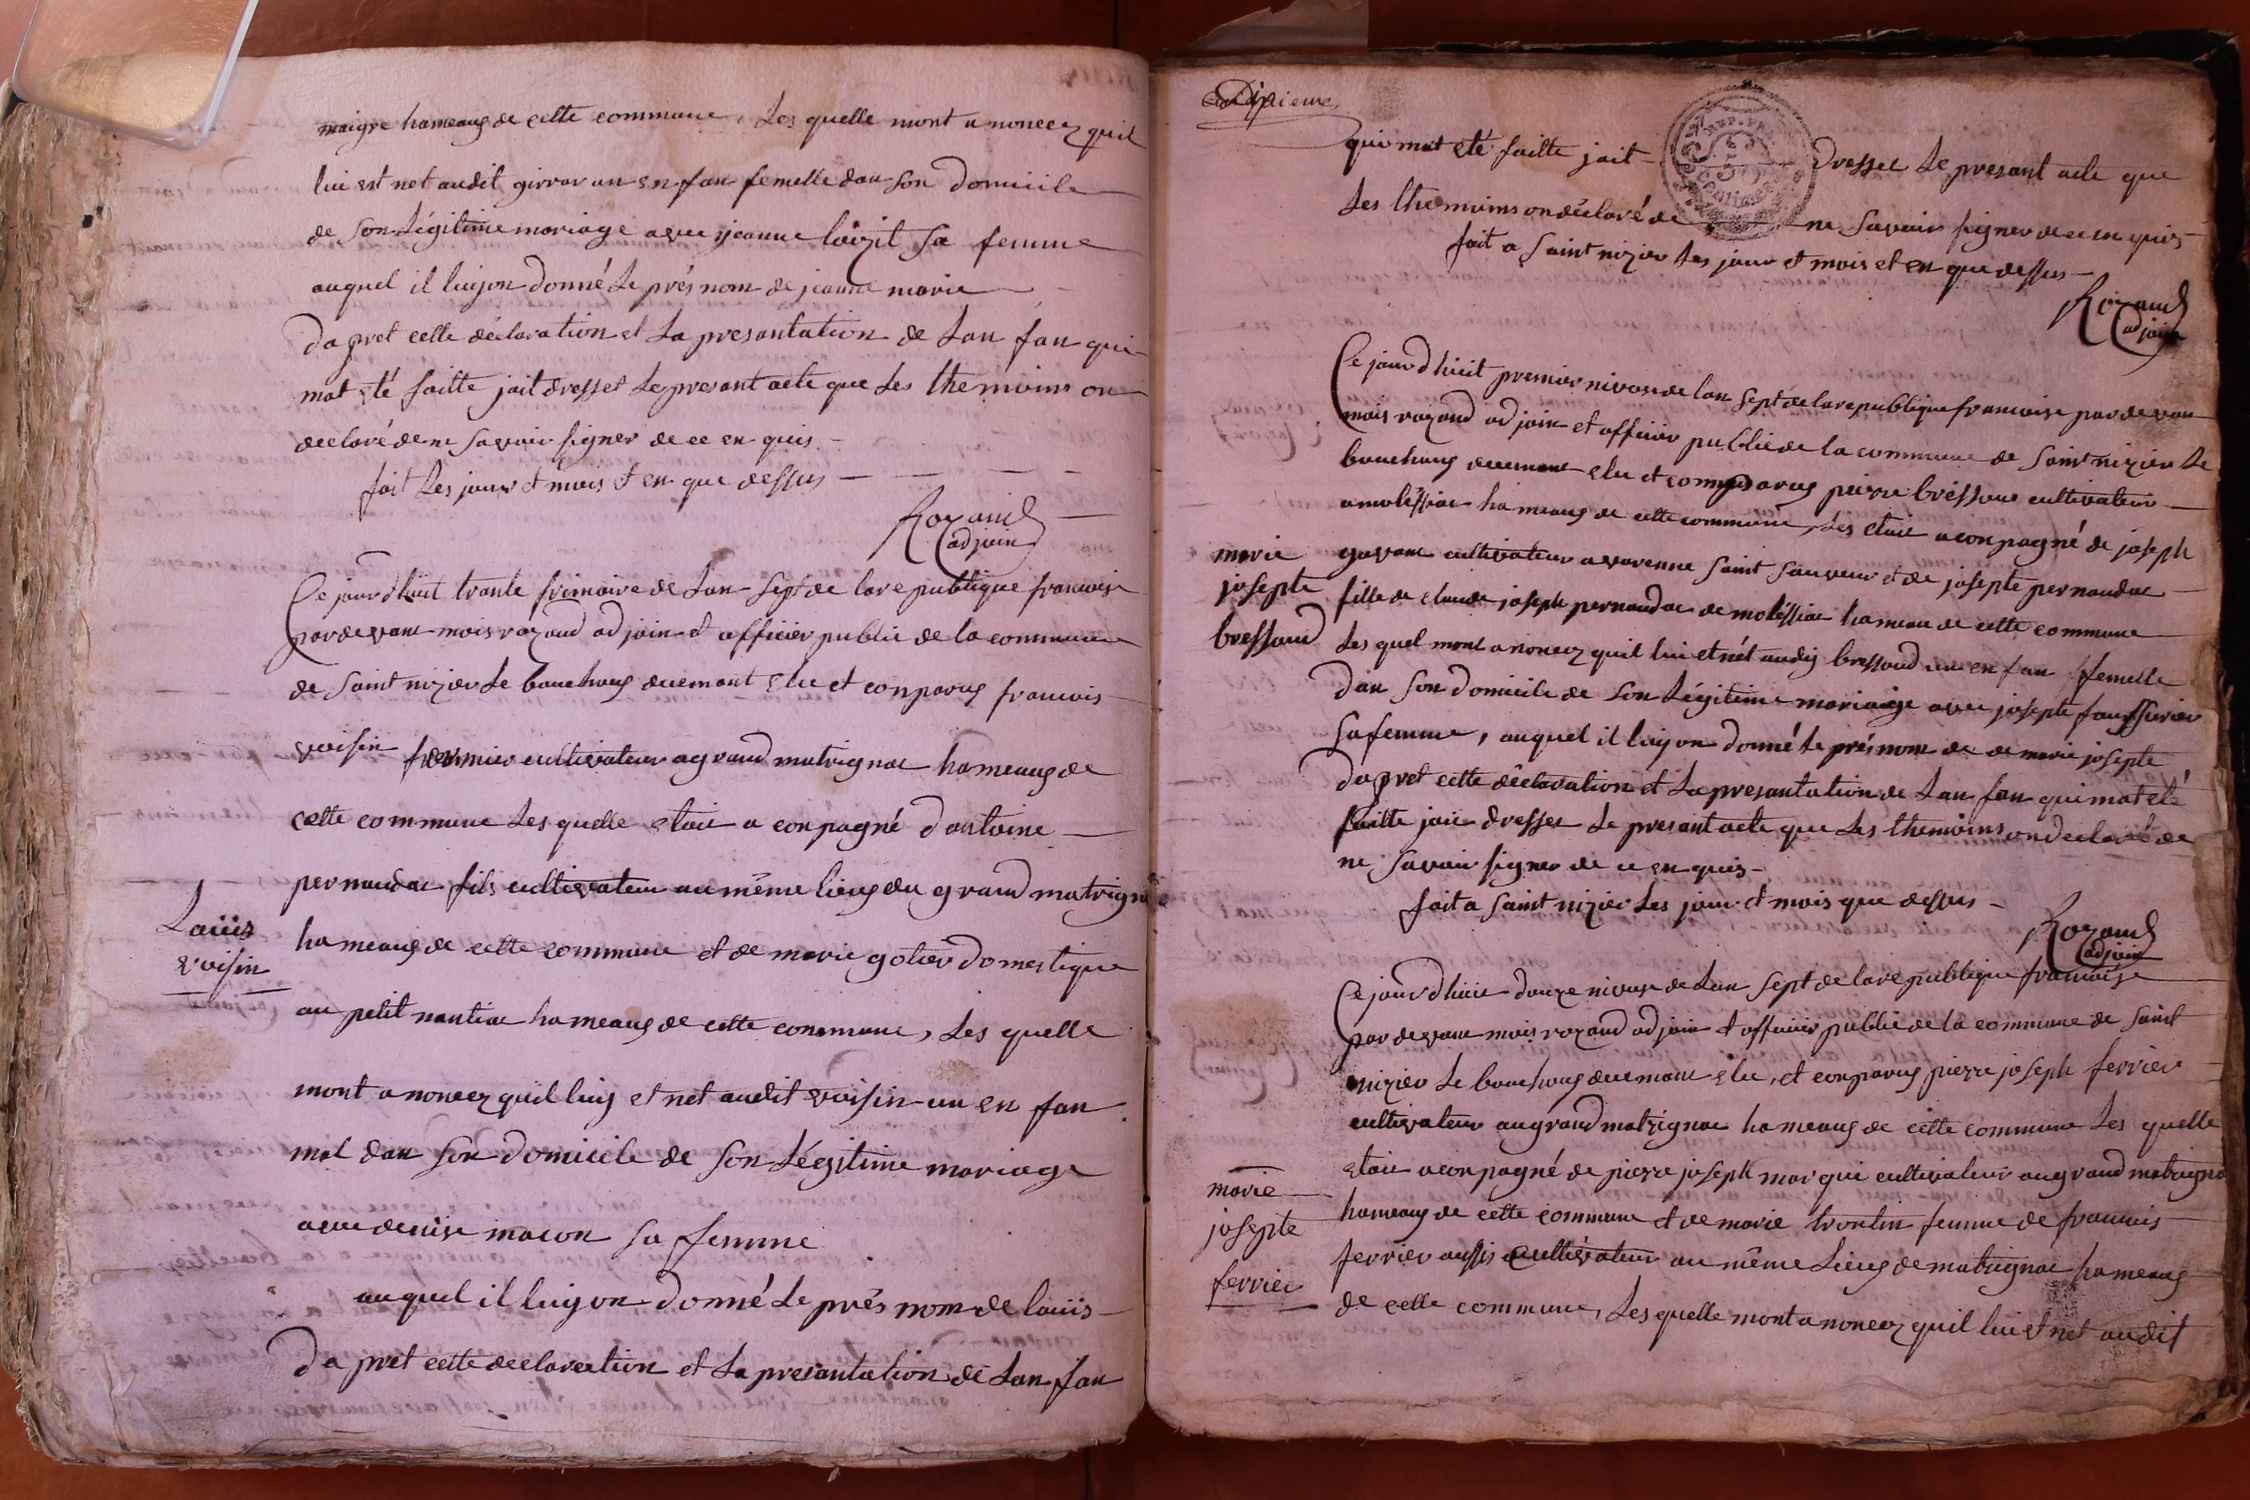 maigre hameaux de cette commune, Les quelle mont anoncez quil
lui est net audit girrar un enfan femelle dan son domicile
de son Légitime mariage avec jeanne sa femme
auquel il luijon donné Le présnom de jeanne marie
dapret cette déclaration et La presantation de Lan fan qui
mat été faitte jait dresser Le presant acte que Les themoins on
declaré de ne savoir signer de ce enquis
fait Les jour et mois et en que dessus
Rozand
adjoin
Ce jourdhuit trante frimaire de Lan Sept de la republique francoise
pardevant mois rozand adjoin et officier public de la commune
de Saint nizier Le bouchoux duemant elu et conparus francois
voisin fermier cultivateur agrand matrignat hameaux de
cette commune Les quelle etait aconpagné dantoine
pernaudat fils cultivateur au même lieux du grand matrignat
Laüis
voisin
hameaux de cette commune et de marie golier domestique
au petit nantiat hameaux de cette commune, Les quelle
mont anoncez quil luij et net audit voisin un en fan
mal dan son domicile de son Légitime mariage
avec denise macon sa femme
auquel il luijon donné Le prés nom de laüis
dapret cette declaration et La presantation de Lan fan
qui mat eté faitte jait dresser Le presant acte que
Les themoins on déclaré de ne savoir signer de ce enquis
fait a Saint nizier Les jour et mois et en que dessus
REP. FRA.
5
Rozand
adjoin
Ce jourdhuit premier nivose de lan Sept de la republique francoise pardevan
mois rozand adjoin et officier public de la commune de Saint nizier Le
bouchoux duemant elu et conparus peirre bressous cultivateur
a moléssiat hameaux de cette commune, Les etait aconpagné de joseph
marie
josepte
bressoud
gavant cultivateur a varenne Saint Sauveur et de josepte pernaudat
fille de claude joseph pernaudat de moléssiat hameau de cette commune
Les quel mont anoncez quil lui et nét audij bressoud un en fan femelle
dan son domicile de son Légitime mariaige avec josepte
sa femme, auquel il luijon donné Le présnom de de marie josepte
dapret cette déclaration et La presantation de Lan fan qui mat eté
faitte jait dresser Le presant acte que Les themoins on declaré de
ne savoir signer de ce enquis
fait a Saint nizier Les jour et mois que dessus
Rozand
adjoin
Ce jourdhuit douze nivose de Lan Sept de la republique francoise
pardevant mois rozand adjoin et officier public de la commune de Saint
nizier Le bouchoux duemant elu, et conparus pierre joseph ferrier
cultivateur augrand matrignat hameaux de cette commune Les quelle
etait aconpagné de pierre joseph marqui cultivateur augrand matrigna
marie
josepte
ferrier
hameaux de cette commune et de marie trontin femme de francois
ferrier aussis cultivateur au même Lieux de matrignat hameaux
de cette commune, Les quelle mont anoncez quil lui et net audit